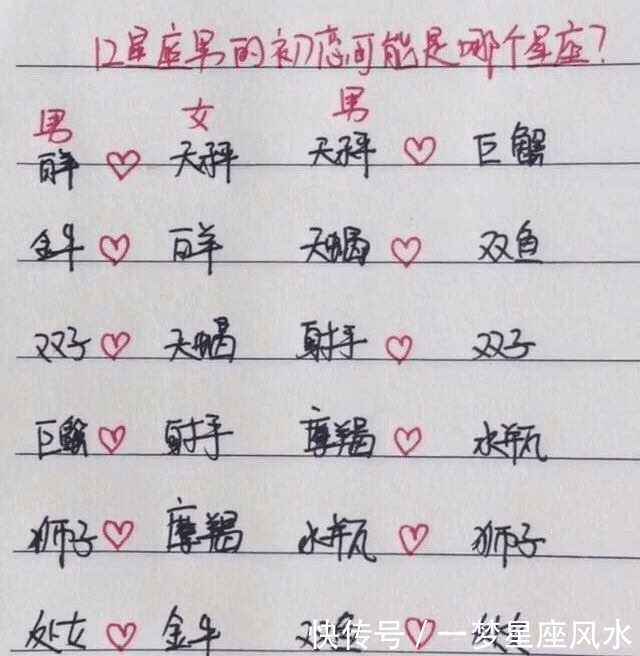 12星座男的初恋可能是哪个星座?
男 女 男
白羊 ♡ 天秤 天秤 ♡ 巨蟹
金牛 ♡ 白羊 天蝎 ♡ 双鱼
双子 ♡ 天蝎 射手 ♡ 双子
巨蟹 ♡ 射手 摩羯 ♡ 水瓶
狮子 ♡ 摩羯 水瓶 ♡ 狮子
处女 ♡ 金牛
快传号/一梦星座风水